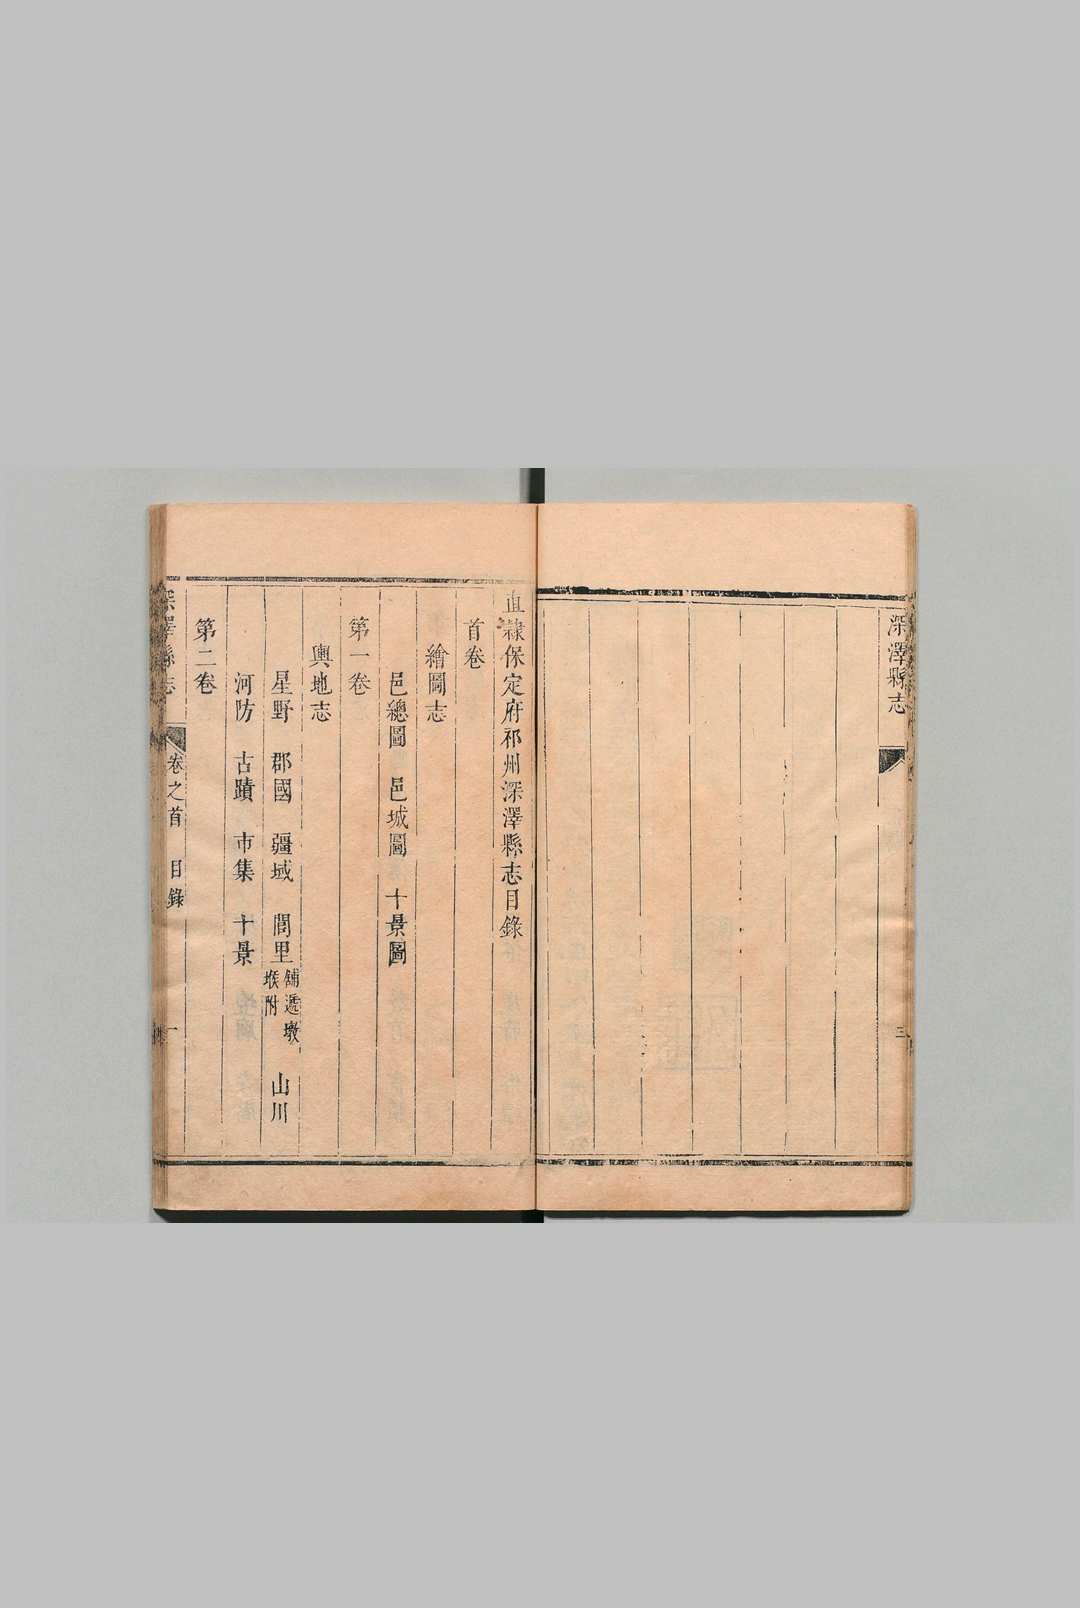 深澤縣志
三
直隸保定府祁州深澤縣志目錄
首卷
繪圖志
邑總圖 邑城圖 十景圖
第一卷
輿地志
星野 郡國 疆域 閭里 舖遞墩堠附 山川
河防 古蹟 市集 十景
第二卷
深澤縣志 卷之首 目錄 一